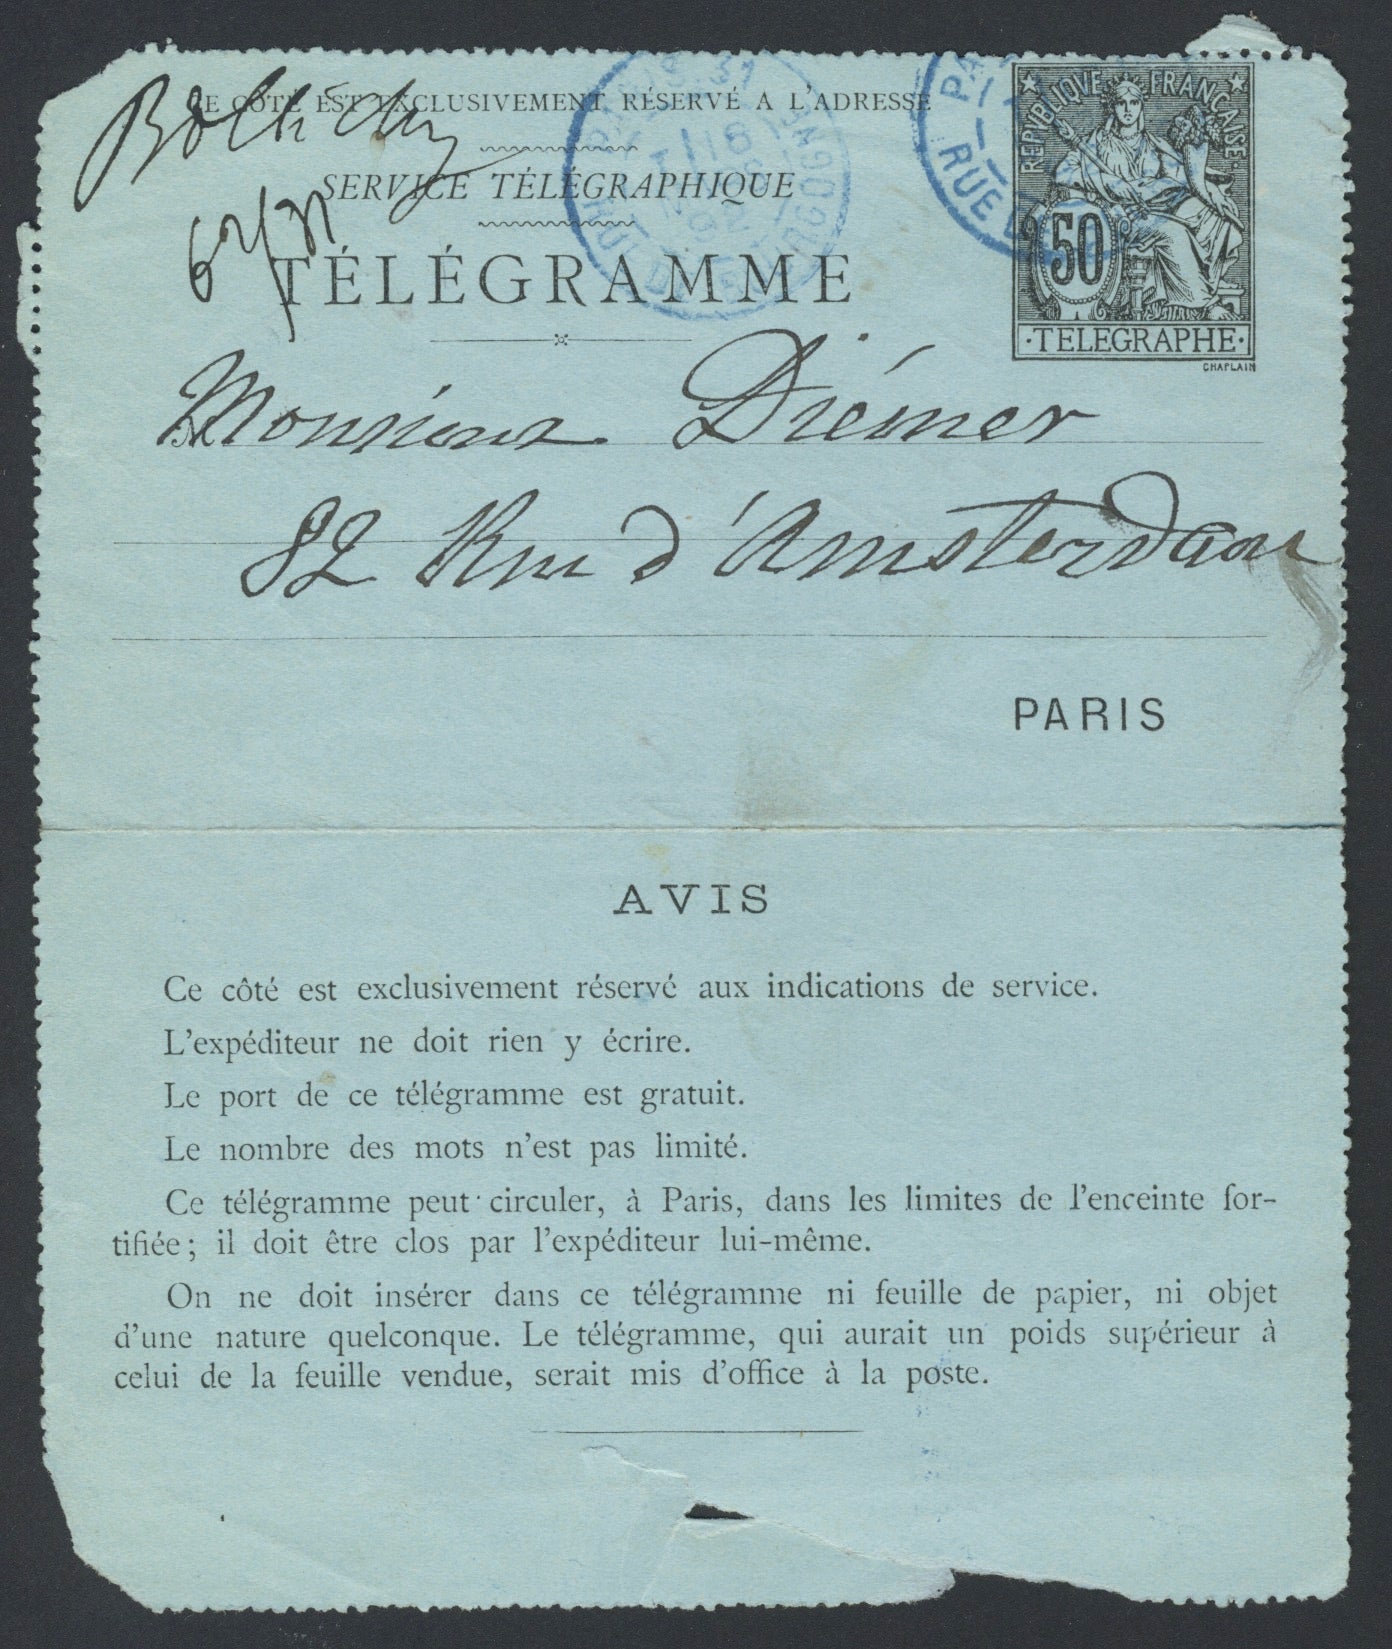 CE CÔTÉ EST EXCLUSIVEMENT RÉSERVÉ A L'ADRESSE
SERVICE TÉLÉGRAPHIQUE
TÉLÉGRAMME
RÉPUBLIQUE FRANÇAISE
50
TELEGRAPHE
CHAPLAIN
Monsieur Diémer
82 Rue d'Amsterdam
PARIS
AVIS
Ce côté est exclusivement réservé aux indications de service.
L'expéditeur ne doit rien y écrire.
Le port de ce télégramme est gratuit.
Le nombre des mots n'est pas limité.
Ce télégramme peut circuler, à Paris, dans les limites de l'enceinte for-
tifiée; il doit être clos par l'expéditeur lui-même.
On ne doit insérer dans ce télégramme ni feuille de papier, ni objet
d'une nature quelconque. Le télégramme, qui aurait un poids supérieur à
celui de la feuille vendue, serait mis d'office à la poste.